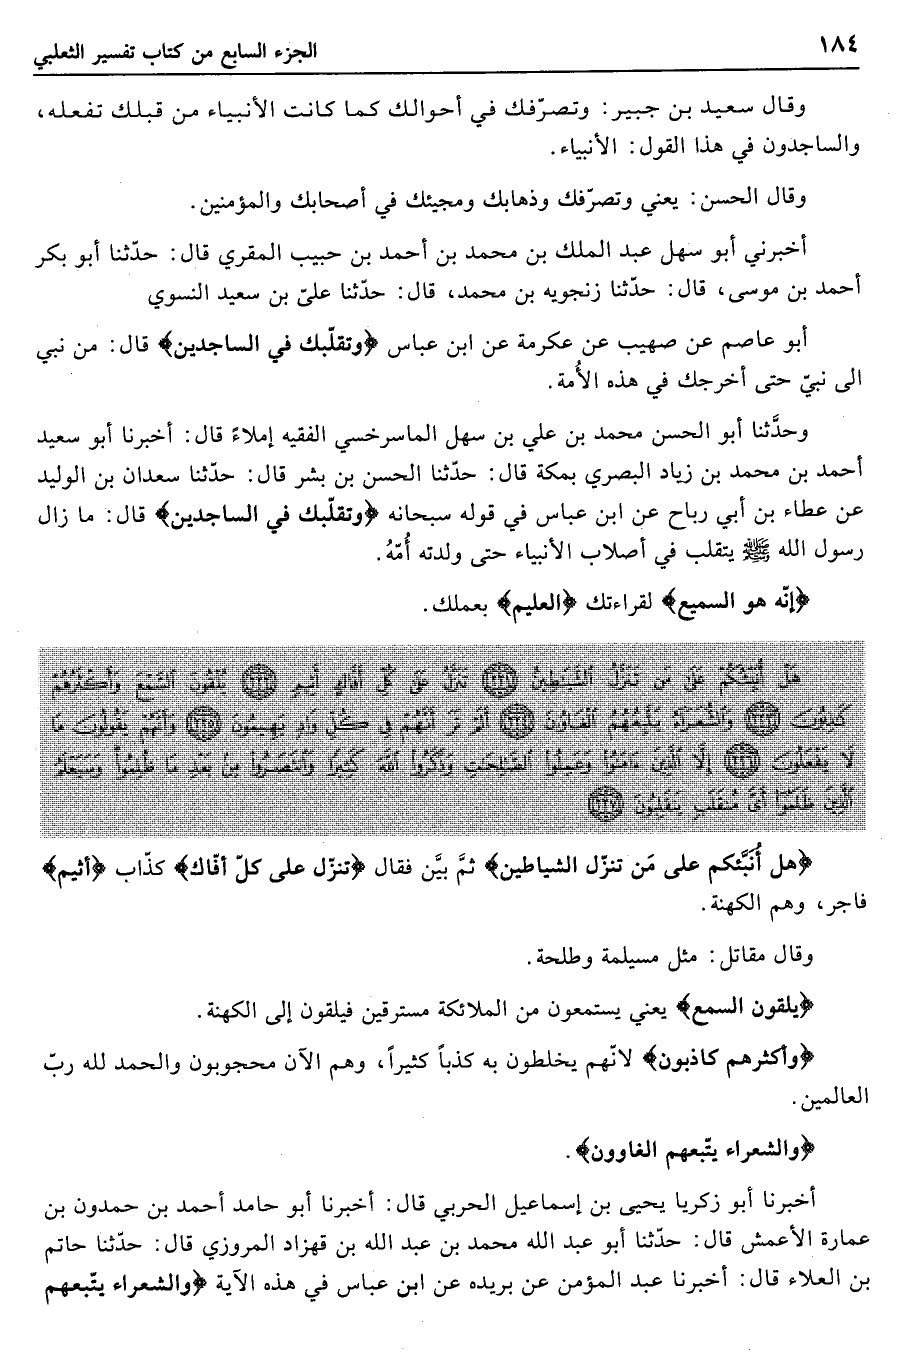 ١٨٤ الجزء السابع من كتاب تفسير الثعلبي
وقال سعيد بن جبير: وتصرّفك في أحوالك كما كانت الأنبياء من قبلك تفعله،
والساجدون في هذا القول: الأنبياء.
وقال الحسن: يعني وتصرّفك وذهابك ومجيئك في أصحابك والمؤمنين.
أخبرني أبو سهل عبد الملك بن محمد بن أحمد بن حبيب المقري قال: حدّثنا أبو بكر
أحمد بن موسى، قال: حدّثنا زنجويه بن محمد، قال: حدّثنا عليّ بن سعيد النسوي
أبو عاصم عن صهيب عن عكرمة عن ابن عباس ﴿وتقلّبك في الساجدين﴾ قال: من نبي
الى نبيّ حتى أخرجك في هذه الأُمة.
وحدَّثنا أبو الحسن محمد بن علي بن سهل الماسرخسي الفقيه إملاءً قال: أخبرنا أبو سعيد
أحمد بن محمد بن زياد البصري بمكة قال: حدّثنا الحسن بن بشر قال: حدّثنا سعدان بن الوليد
عن عطاء بن أبي رباح عن ابن عباس في قوله سبحانه ﴿وتقلّبك في الساجدين﴾ قال: ما زال
رسول الله ﷺ يتقلب في أصلاب الأنبياء حتى ولدته أُمّهُ.
﴿إنّه هو السميع﴾ لقراءتك ﴿العليم﴾ بعملك.
هَلْ أُنَبِّئُكُمْ عَلَىٰ مَن تَنَزَّلُ الشَّيَاطِينُ ﴿٢٢١﴾ تَنَزَّلُ عَلَىٰ كُلِّ أَفَّاكٍ أَثِيمٍ ﴿٢٢٢﴾ يُلْقُونَ السَّمْعَ وَأَكْثَرُهُمْ
كَاذِبُونَ ﴿٢٢٣﴾ وَالشُّعَرَاءُ يَتَّبِعُهُمُ الْغَاوُونَ ﴿٢٢٤﴾ أَلَمْ تَرَ أَنَّهُمْ فِي كُلِّ وَادٍ يَهِيمُونَ ﴿٢٢٥﴾ وَأَنَّهُمْ يَقُولُونَ مَا
لَا يَفْعَلُونَ ﴿٢٢٦﴾ إِلَّا الَّذِينَ ءَامَنُوا وَعَمِلُوا الصَّالِحَاتِ وَذَكَرُوا اللَّهَ كَثِيرًا وَانْتَصَرُوا مِنْ بَعْدِ مَا ظُلِمُوا وَسَيَعْلَمُ
الَّذِينَ ظَلَمُوا أَيَّ مُنقَلَبٍ يَنقَلِبُونَ ﴿٢٢٧﴾
﴿هل أُنبَّئكم على مَن تنزّل الشياطين﴾ ثمَّ بيَّن فقال ﴿تنزّل على كلّ أفّاك﴾ كذّاب ﴿أثيم﴾
فاجر، وهم الكهنة.
وقال مقاتل: مثل مسيلمة وطلحة.
﴿يلقون السمع﴾ يعني يستمعون من الملائكة مسترقين فيلقون إلى الكهنة.
﴿وأكثرهم كاذبون﴾ لانّهم يخلطون به كذباً كثيراً، وهم الآن محجوبون والحمد لله ربّ
العالمين.
﴿والشعراء يتّبعهم الغاوون﴾.
أخبرنا أبو زكريا يحيى بن إسماعيل الحربي قال: أخبرنا أبو حامد أحمد بن حمدون بن
عمارة الأعمش قال: حدّثنا أبو عبد الله محمد بن عبد الله بن قهزاد المروزي قال: حدّثنا حاتم
بن العلاء قال: أخبرنا عبد المؤمن عن بريده عن ابن عباس في هذه الآية ﴿والشعراء يتّبعهم